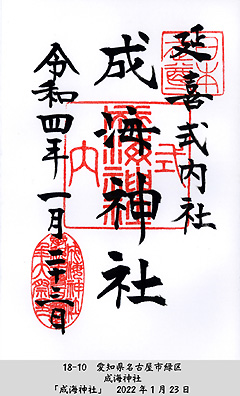 延喜式内社
成海神社
令和四年一月二十三日
式内
成海神社
18-10 愛知県名古屋市緑区
成海神社
「成海神社」 2022年1月23日